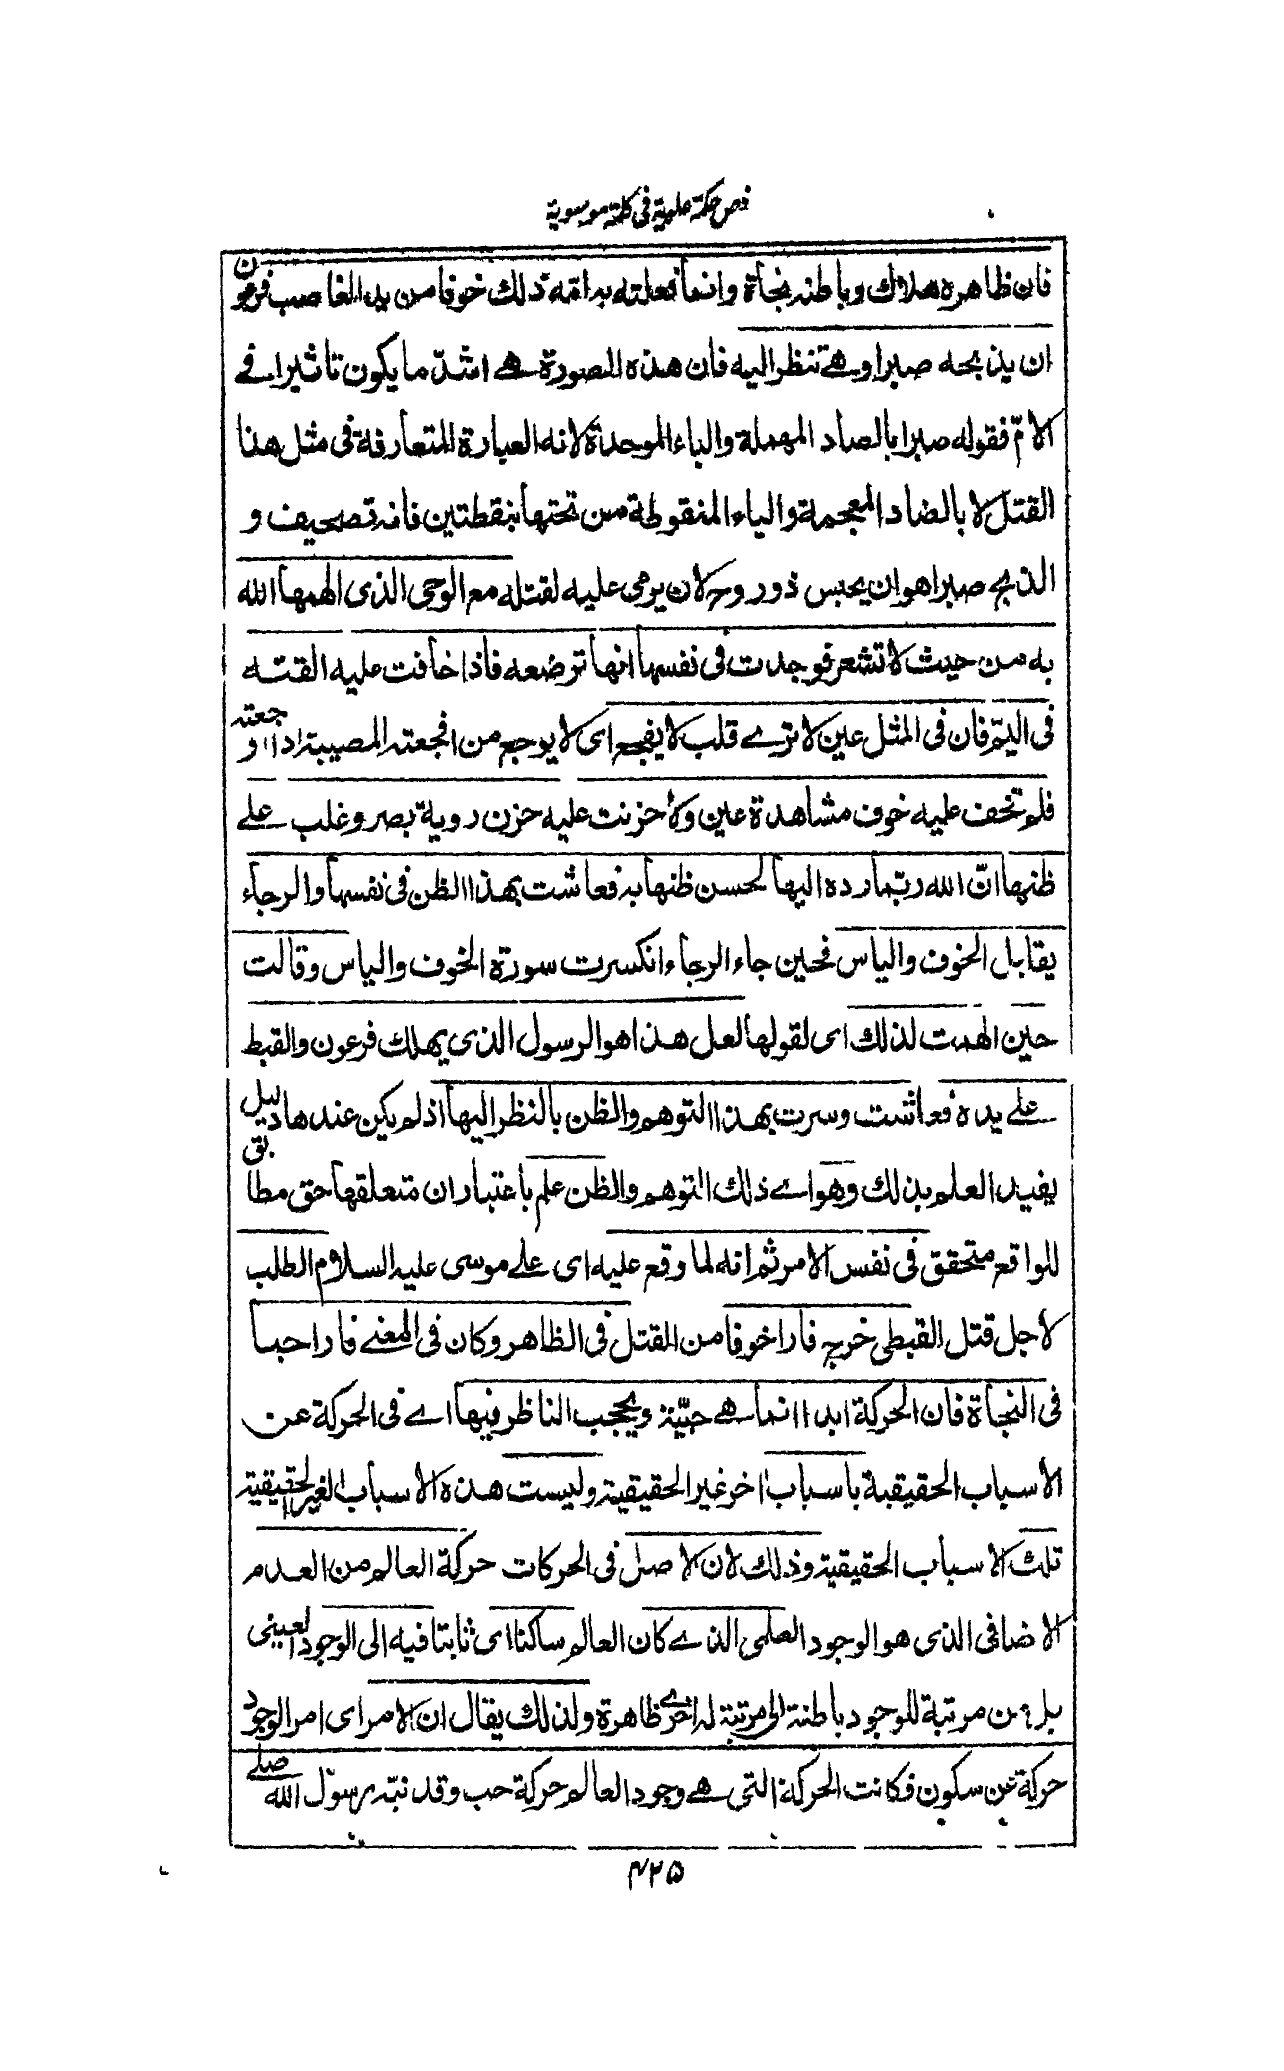 فص حكمة علوية في كلمة موسوية
فان ظاهره هلاك وباطنه نجاة وانما فعلته به امّه ذلك خوفا من يد الغاصب فرعون
ان يذبحه صبرا وهے تنظر اليه فان هذه الصورة هے اشدّ ما يكون تاثيرا فے
الامّ فقوله صبرا بالصاد المهملة والباء الموحدة لانه العبارة المتعارفة فى مثل هذا
القتل لا بالضاد المعجمة والياء المنقوطة من تحتها بنقطتين فانه تصحيف و
الذبح صبرا هو ان يحبس ذو روح لان يرمى عليه لقتله مع الوحى الذى الهمها الله
به من حيث لا تشعر فوجدت فى نفسها انها ترضعه فاذا خافت عليه القته
فى اليم فان فى المثل عين لا ترے قلب لا يفجع اى لا يوجع من افجعته المصيبة اذا اوجعته
فلم تخف عليه خوف مشاهدة عين ولا حزنت عليه حزن روية بصر وغلب علے
ظنها انّ الله ربّما رده اليها لحسن ظنها به فعاشت بهذا الظن فى نفسها والرجاء
يقابل الخوف والياس فحين جاء الرجاء انكسرت سورة الخوف والياس وقالت
حين الهمت لذلك اى لقولها لعل هذا هو الرسول الذى يهلك فرعون والقبط
علے يده فعاشت وسرت بهذا التوهم والظن بالنظر اليها اذ لم يكن عندها دليل
يفيد العلم بذلك وهو اے ذلك التوهم والظن علم باعتبار ان متعلقها حق مطابق
للواقع متحقق فى نفس الامر ثم انه لما وقع عليه اى علے موسى عليه السلام الطلب
لاجل قتل القبطى خرج فارا خوفا من القتل فى الظاهر وكان فى المعنے فارا حبا
فى النجاة فان الحركة ابدا انما هے حبّية ويحجب الناظر فيها اے فى الحركة عن
الاسباب الحقيقية باسباب اخر غير الحقيقية وليست هذه الاسباب الغير الحقيقية
تلك الاسباب الحقيقية وذلك لان الاصل فى الحركات حركة العالم من العدم
الاضافى الذى هو الوجود العلمى الذے كان العالم ساكنا اى ثابتا فيه الى الوجود العينى
بل من مرتبة للوجود باطنة الى مرتبة له اخرے ظاهرة ولذلك يقال ان الامر اى امر الوجود
حركة عن سكون فكانت الحركة التى هے وجود العالم حركة حب وقد نبّه رسول الله صلے
۴۲۵